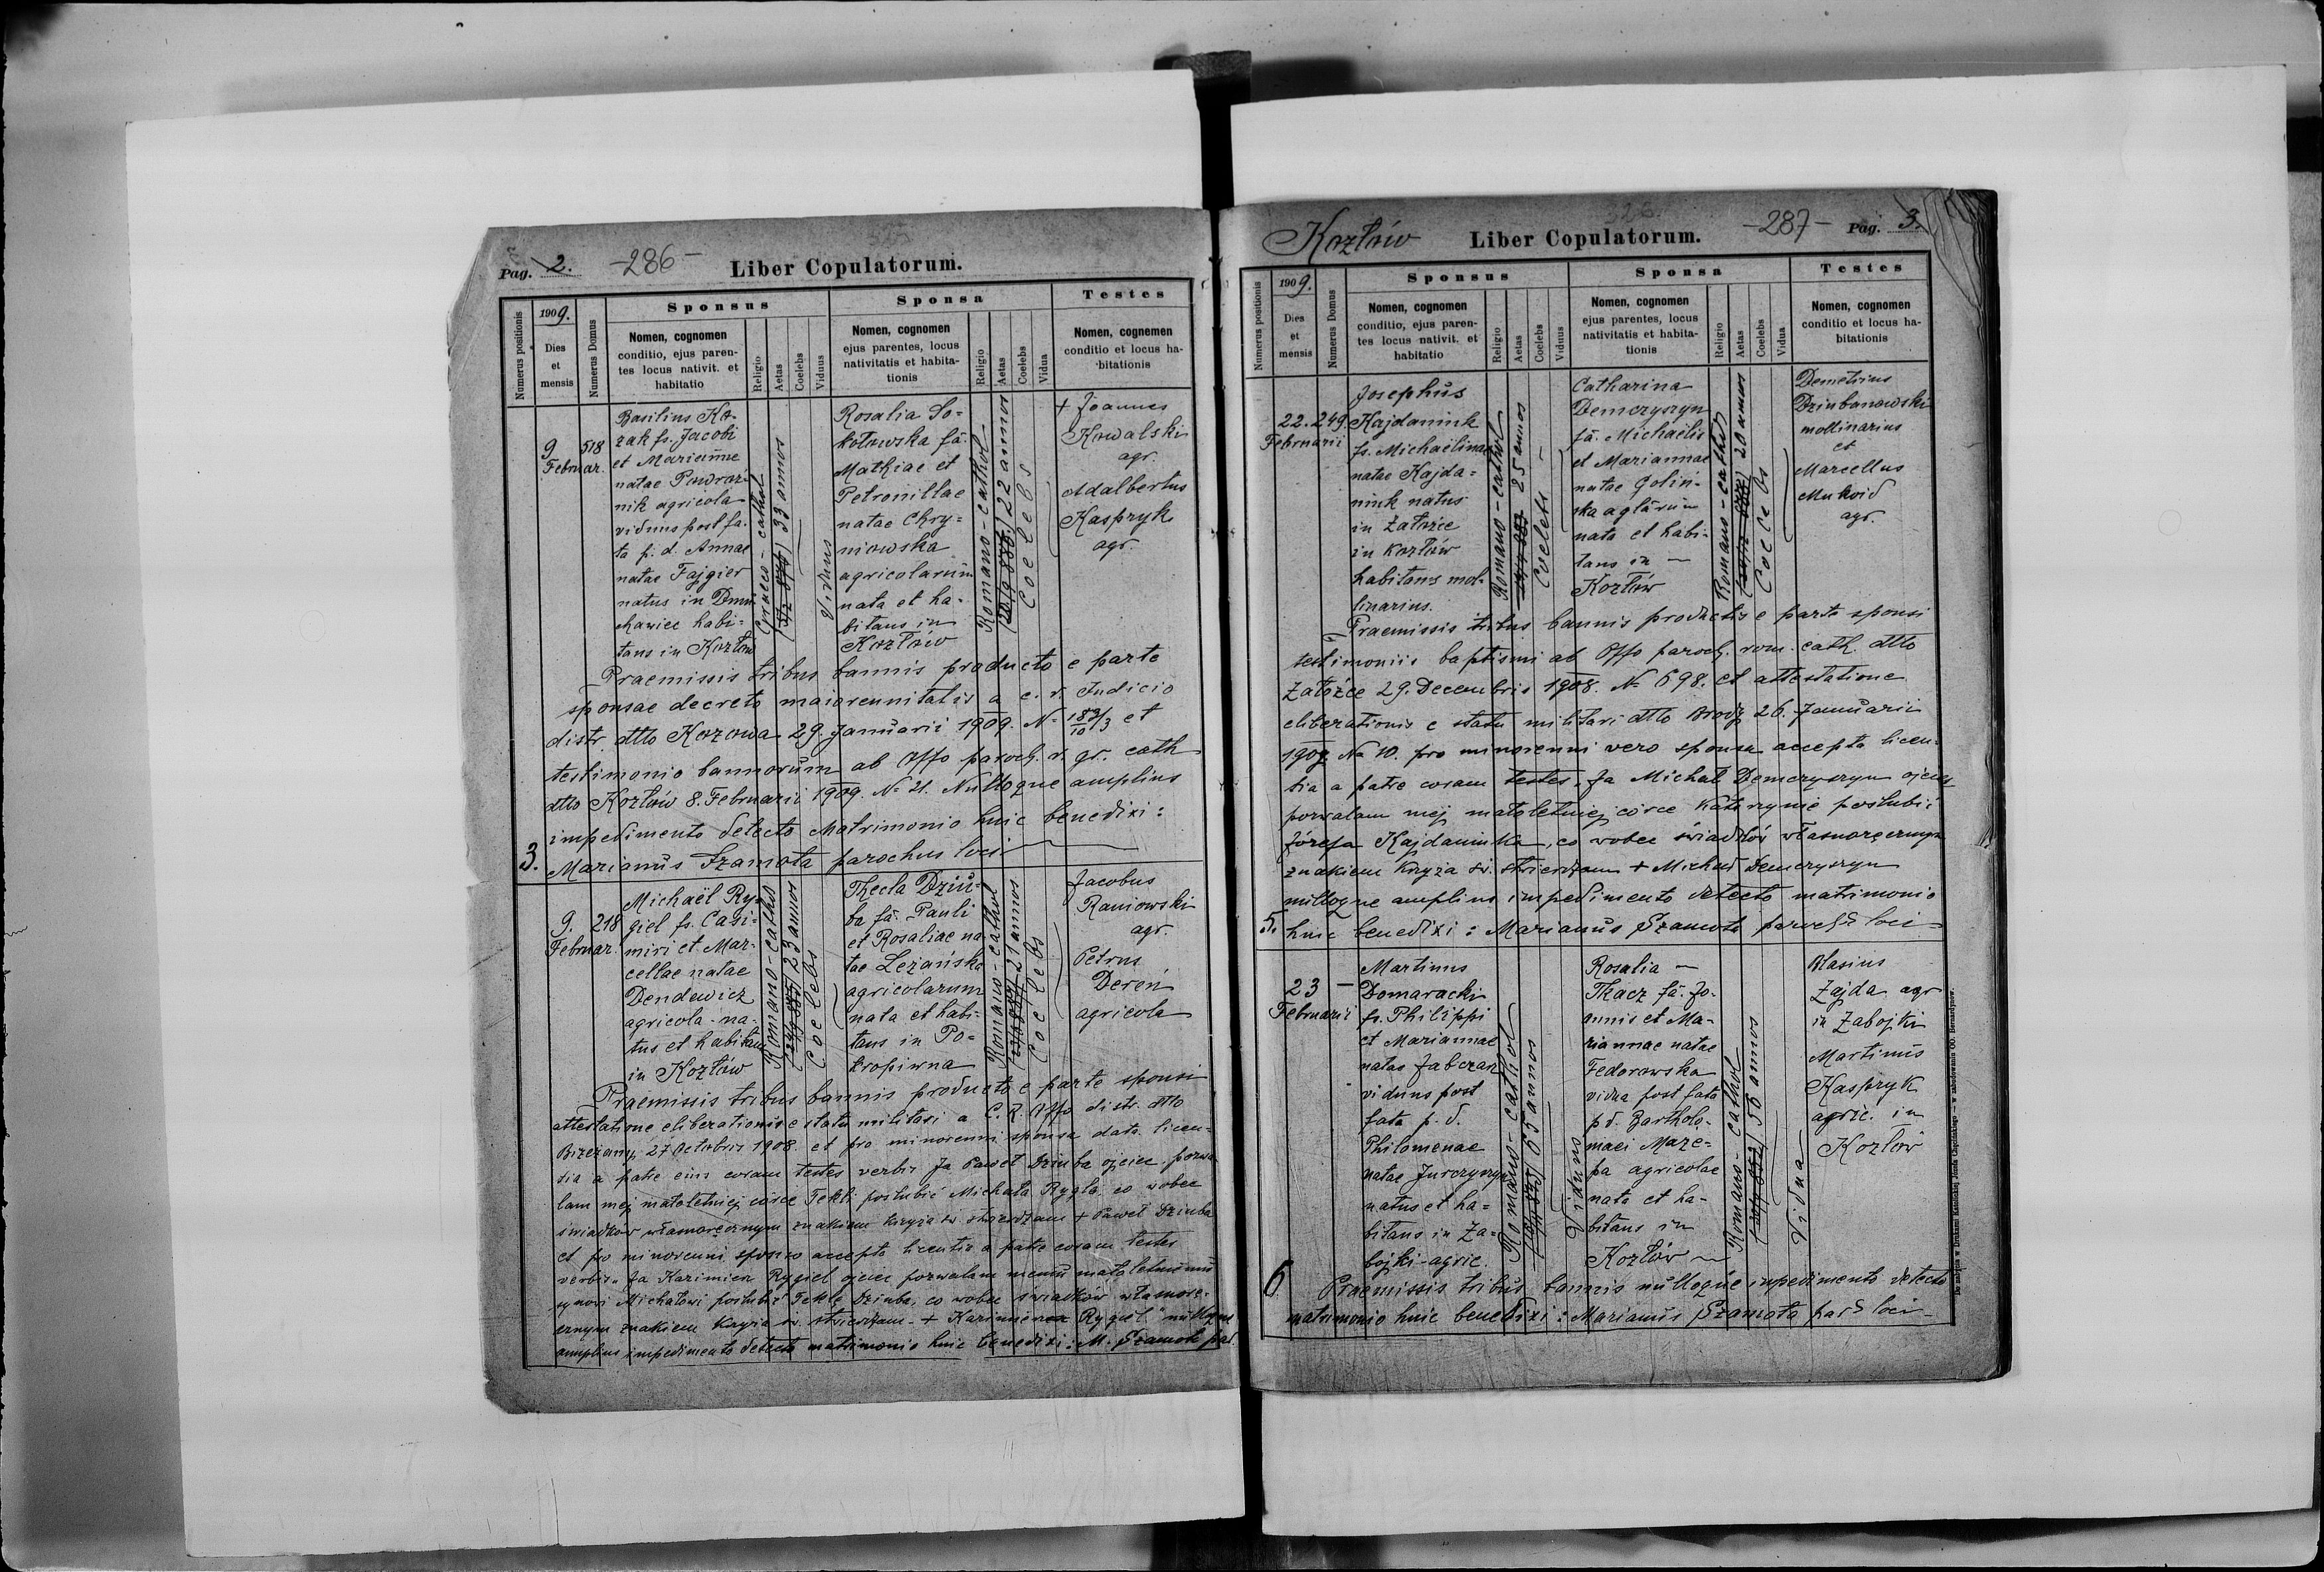 Pag. 2.
-286-
Liber Copulatorum.
Numerus positionis
1909.
Dies
et
mensis
Numerus Domus
Sponsus
Nomen, cognomen
conditio, ejus paren-
tes locus nativit. et
habitatio
Religio
Aetas
Coelebs
Viduus
Sponsa
Nomen, cognomen
ejus parentes, locus
nativitatis et habita-
tionis
Religio
Aetas
Coelebs
Vidua
Testes
Nomen, cognemen
conditio et locus ha-
bitationis
9
Februar.
518
Basilius Ko-
zak fs. Jacobi
et Marianne
natae Powroź-
nik agricola
viduus post fa-
ta p. d. Annae
natae Fajgier
natus in Dmu-
chawiec habi-
tans in Kozłów
Graeco-cathol
33 annos
Viduus
Rosalia So-
kołowska fa.
Mathiae et
Petronillae
natae Chry-
niowska
agricolarum
nata et ha-
bitans in
Kozłów
Romano-cathol
22 annos
Coelebs
+ Joannes
Kowalski
agr.
Adalbertus
Kaspryk
agr.
Praemissis tribus bannis producto e parte
sponsae decreto maiorennitatis a c. r. Judicio
distr. dtto Kozowa 29. Januarii 1909. N- et
testimonio bannorum ab Offo paroch. r. gr. cath
dtto Kozłów 8. Februarii 1909. N- 21. Nulloque amplius
impedimento detecto Matrimonio huic benedixi:
3. Marianus Szamota parochus loci
9.
Februar.
218
Michaël Ry-
giel fs. Casi-
miri et Mar-
cellae natae
Dendewicz
agricola na-
tus et habitans
in Kozłów
Romano-cathol
23 annos
Coelebs
Thecla Dziu-
ba fa. Pauli
et Rosaliae na-
tae Leżańska
agricolarum
nata et habi-
tans in Po-
kropiwna
Romano-cathol
21 annos
Coelebs
Jacobus
Raniowski
agr.
Petrus
Dereń
agricola
Praemissis tribus bannis producto e parte sponsi
attestatione eliberationis e statu militari a C. R. Offo distr. dtto
Brzeżany, 27 Octobris 1908. et pro minorenni sponsa data licen-
tia a patre eius coram testes verbis Ja Paweł Dziuba ojciec pozwa-
lam mej małoletniej córce Tekli poślubić Michała Rygla, co wobec
świadków własnoręcznym znakiem krzyża św stwierdzam + Paweł Dziuba
et pro minorenni sponso accepta licentia a patre coram testes
verbis „Ja Kazimierz Rygiel ojciec pozwalam memu małoletniemu
synowi Michałowi poślubić Teklę Dziuba, co wobec świadków własnorę-
cznym znakiem krzyża św. stwierdzam - + Kazimierz Rygiel" nulloque
amplius impedimento detecto matrimonio huic benedixi: M. Szamota par.
Kozłów
Liber Copulatorum.
-287-
Pag. 3.
Numerus positionis
1909.
Dies
et
mensis
Numerus Domus
Sponsus
Nomen, cognomen
conditio, ejus paren-
tes locus nativit. et
habitatio
Religio
Aetas
Coelebs
Viduus
Sponsa
Nomen, cognomen
ejus parentes, locus
nativitatis et habita-
tionis
Religio
Aetas
Coelebs
Vidua
Testes
Nomen, cognomen
conditio et locus ha-
bitationis
22.
Februarii
249.
Josephus
Kajdaniuk
fs. Michaëlinae
natae Kajda-
niuk natus
in Załoźce
in Kozłów
habitans mol-
linarius.
Romano-cathol
25 annos
Coelebs
Catharina
Demczyszyn
fa. Michaëlis
et Mariannae
natae Golin-
ska agrarum
nata et habi-
tans in
Kozłów
Romano-cathol
20 annos
Coelebs
Demetrius
Dziubanowski
mollinarius
et
Marcellus
Mukoid
agr.
Praemissis tribus bannis productis e parte sponsi
testimoniis baptismi ab Offo paroch. rom. cath. dtto
Załoźce 29. Decembris 1908. N- 698. et attestatione
eliberationis e statu militari dtto Brody 26. Januarii
1909 No 10. pro minorenni vero sponsa accepta licen-
tia a patre coram testes „Ja Michał Demczyszyn ojciec
pozwalam mej małoletniej córce Katarzynie poślubić
Józefa Kajdaniuka, co wobec świadków własnoręcznym
znakiem krzyża św. stwierdzam + Michał Demczyszyn
nulloque amplius impedimento detecto matrimonio
5. huic benedixi: Marianus Szamota paroch. loci
23
Februarii
Martinus
Domaracki
fs. Philippi
et Mariannae
natae Jabczak
viduus post
fata p. d.
Philomenae
natae Jurczyszyn
natus et ha-
bitans in Za-
bójki-agric.
Romano-cathol
65 annos
Viduus
Rosalia
Tkacz fa. Jo-
annis et Ma-
riannae natae
Fedorowska
vidua post fata
p d. Bartholo-
maei Maze-
pa agricolae
nata et ha-
bitans in
Kozłów
Romano-cathol
56 annos
Vidua
Blasius
Zajda agr
in Zabojki
Martinus
Kaspryk
agric. in
Kozłów
6 Praemissis tribus bannis nulloque impedimento detecto
matrimonio huic benedixi: Marianus Szamota par. loci